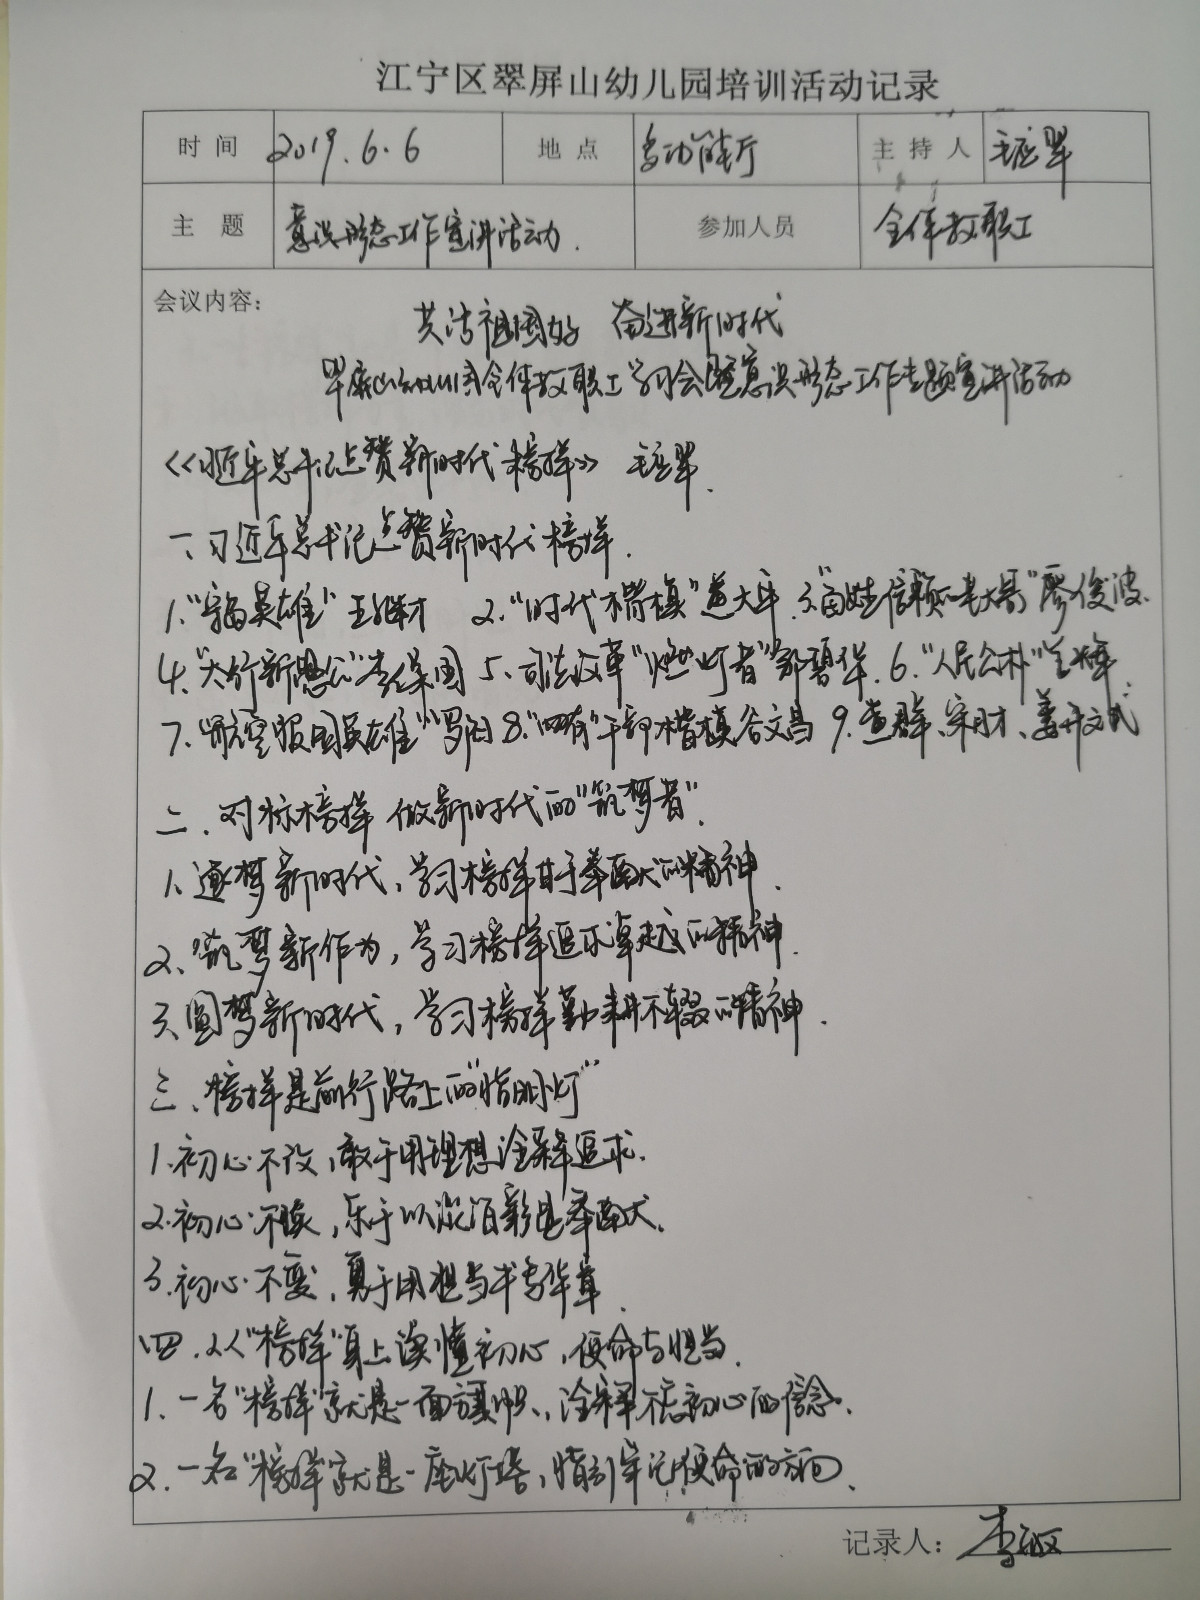 江宁区翠屏山幼儿园培训活动记录
时 间 2019.6.6 地 点 多功能厅 主 持 人
主 题 意识形态工作宣讲活动. 参加人员 全体教职工
会议内容：
共话祖国好 奋进新时代
翠屏山幼儿园全体教职工学习会暨意识形态工作主题宣讲活动
《习近平总书记点赞新时代榜样》
一、习近平总书记点赞新时代榜样.
1.“守岛英雄”王继才 2.“时代楷模”黄大年 3.“百姓信赖的老大哥”廖俊波.
4.“太行新愚公”李保国 5.司法改革“燃灯者”邹碧华. 6.“人民公仆”兰辉
7.“航空报国英雄”罗阳 8.“四有”干部楷模谷文昌 9.黄群、宋月才、姜开斌
二、对标榜样 做新时代的“筑梦者”.
1、逐梦新时代，学习榜样甘于奉献的精神.
2、筑梦新作为，学习榜样追求卓越的精神.
3、圆梦新时代，学习榜样勤耕不辍的精神.
三、榜样是前行路上的“指明灯”
1.初心不改，敢于用理想诠释追求.
2.初心不换，乐于以淡泊彰显奉献.
3.初心不变，勇于用担当书写华章.
四.从“榜样”身上读懂初心，使命与担当.
1.一名“榜样”就是一面旗帜，诠释不忘初心的信念.
2.一名“榜样”就是一座灯塔，指引牢记使命的方向.
记录人：李敏